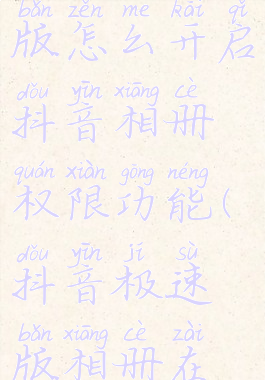 bǎn zěn me kāi qǐ
版怎么开启
dǒu yīn xiāng cè
抖音相册
quán xiàn gōng néng
权限功能(
dǒu yīn jí sù
抖音极速
bǎn xiāng cè zài
版相册在